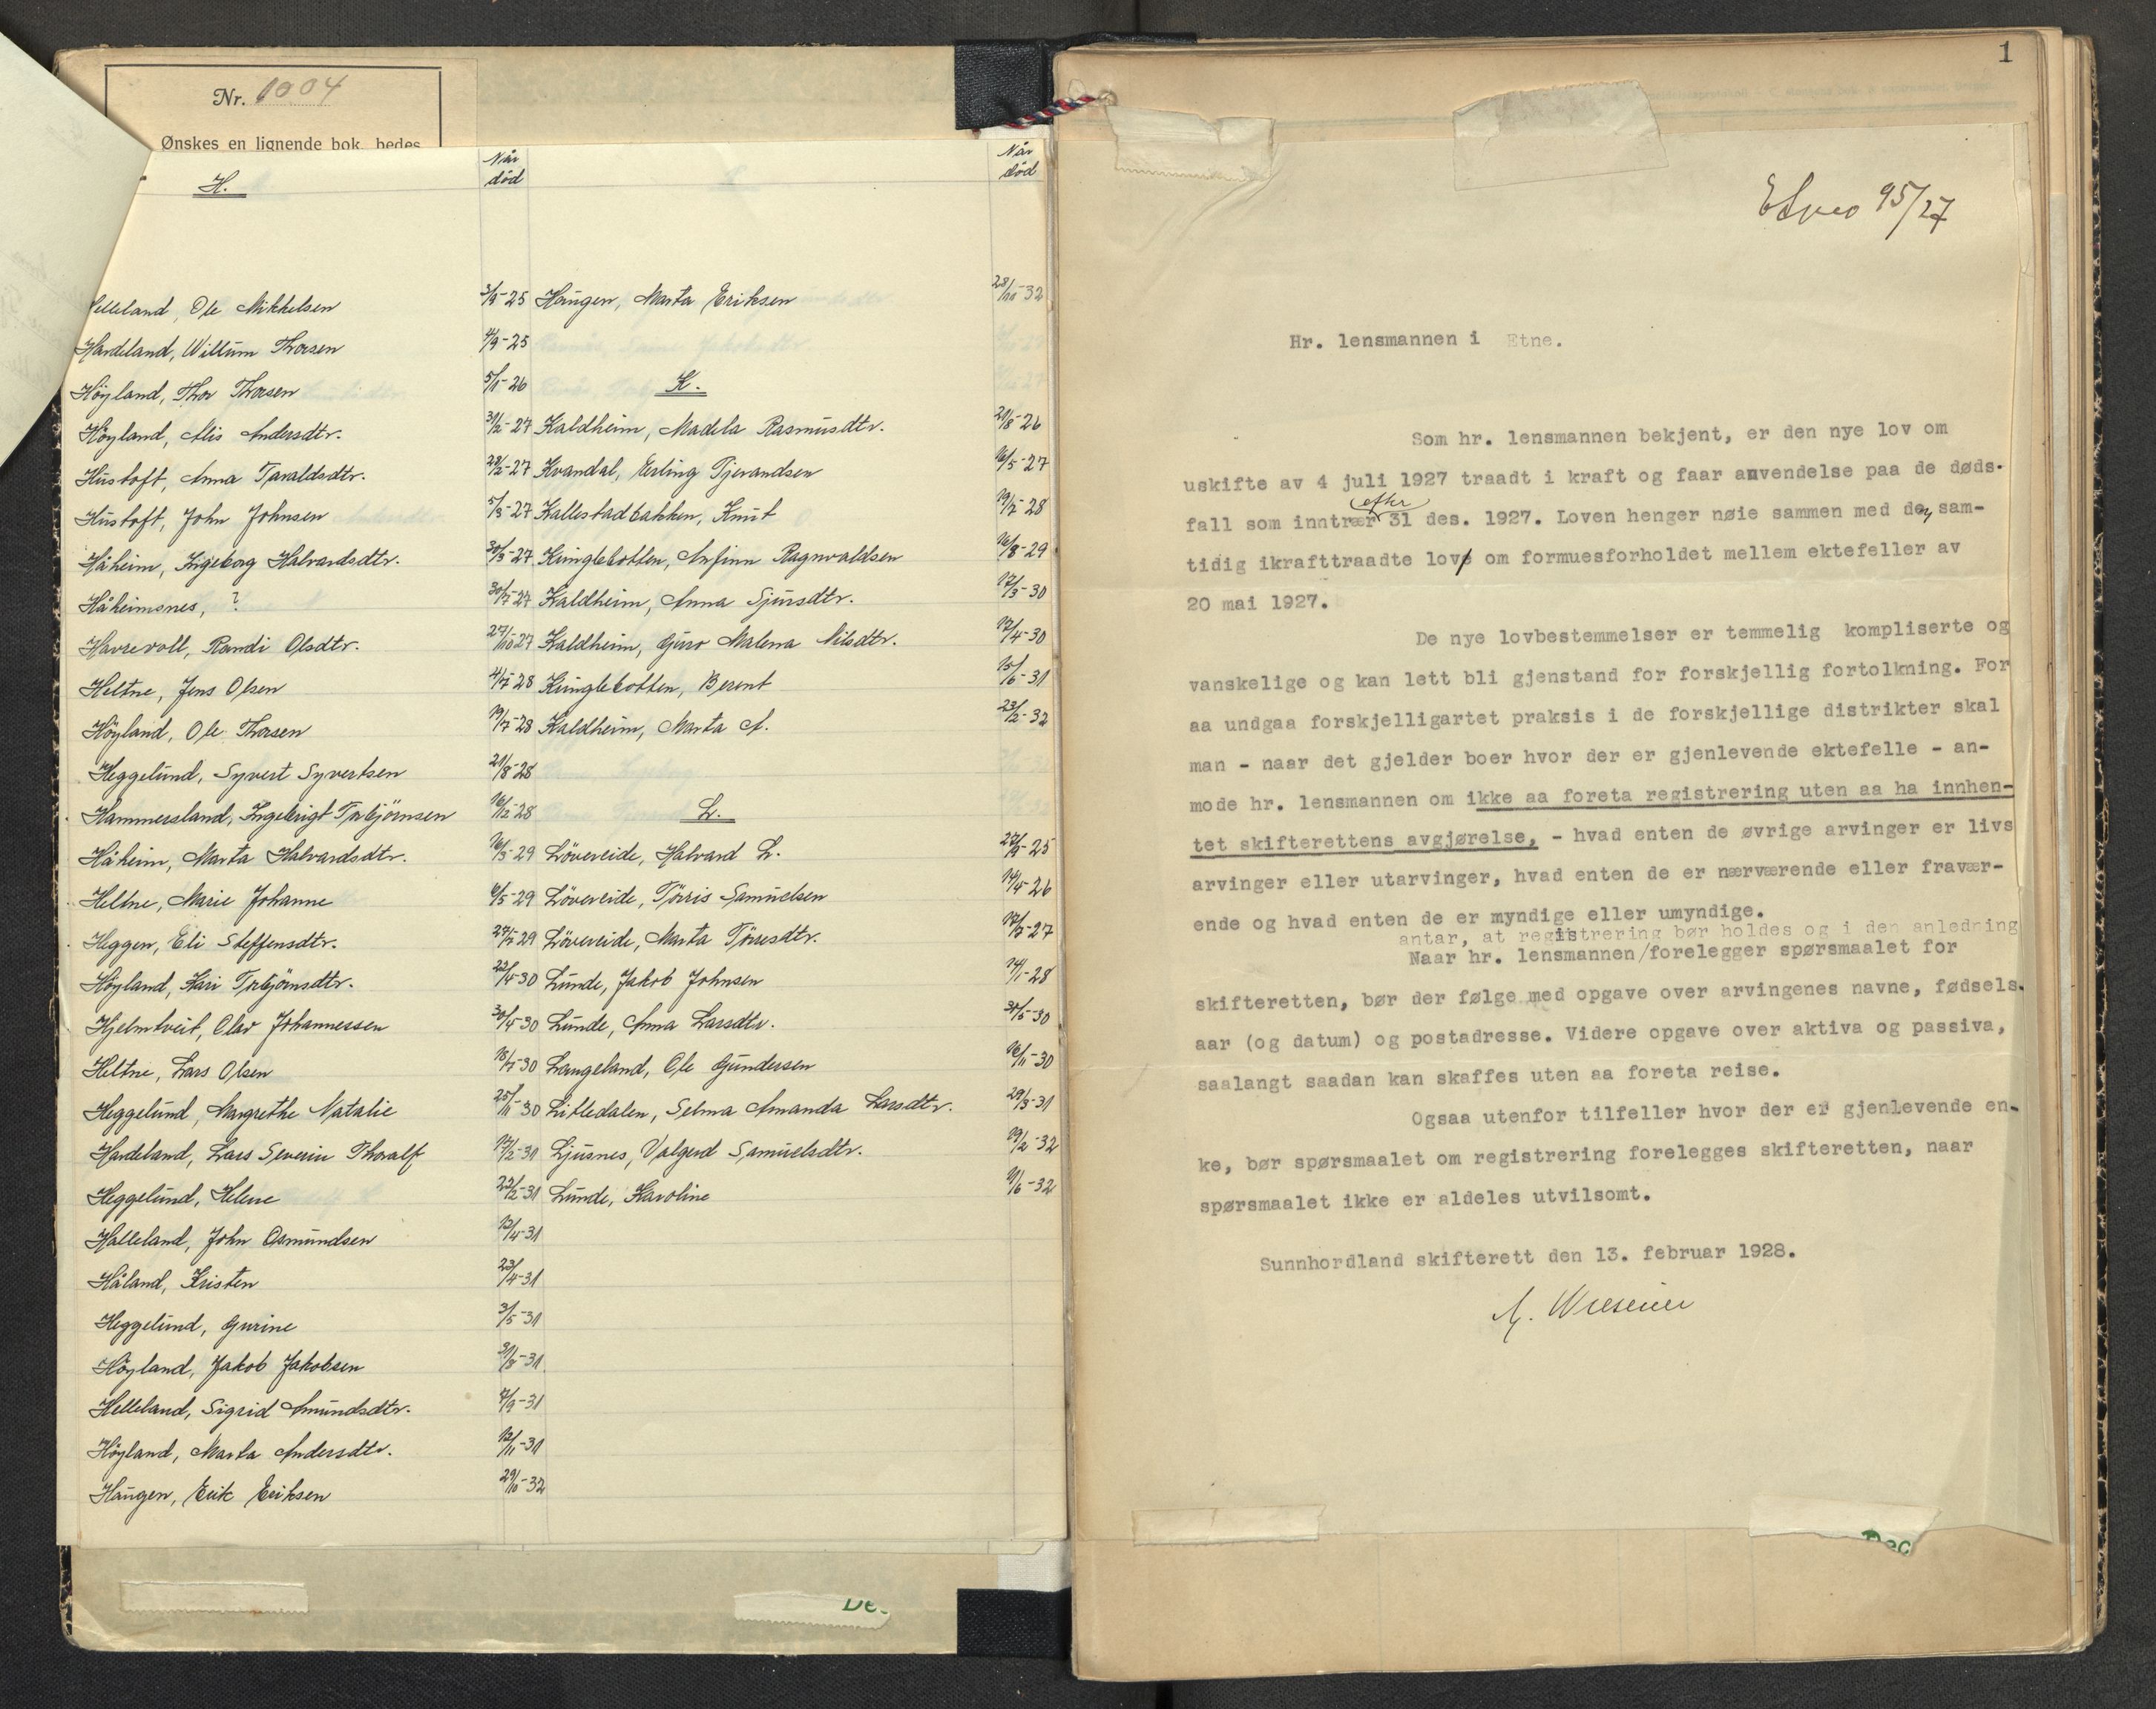 Nr. 1004
Ønskes en lignende bok, bedes
H.
Når
død
Når
død
Helleland, Ole Mikkelsen 3/9-25
Hardeland, Willum Thorsen 4/9-25
Höyland, Thor Thorsen 5/1-26
Höyland, Alis Andersdtr. 31/12-27
Hustoft, Anna Taraldsdtr. 28/2-27
Hustoft, John Johnsen 5/3-27
Håheim, Ingeborg Halvardsdtr. 30/3-27
Håheimsnes, ? 30/7-27
Havrevoll, Randi Olsdtr. 27/10 27
Heltne, Jens Olsen 4/7-28
Höyland, Ole Thorsen 19/7-28
Heggelund, Syvert Syvertsen 21/8-28
Hammersland, Ingebrigt Torbjörnsen 16/12-28
Håheim, Marta Halvardsdtr. 16/3-29
Heltne, Marie Johanne 6/5-29
Heggen, Eli Steffensdtr. 27/7-29
Höyland, Kari Torbjörnsdtr. 22/4-30
Hjelmtveit, Olav Johannessen 30/4-30
Heltne, Lars Olsen 18/7-30
Heggelund, Margrethe Natalie 25/11-30
Hardeland, Lars Severin Thoralf 17/2-31
Heggelund, Helene 22/2-31
Halleland, John Osmundsen 12/4-31
Håland, Kristen 23/4-31
Heggelund, Gurine 3/5-31
Höyland, Jakob Jakobsen 31/8-31
Helleland, Sigrid Amundsdtr. 4/9-31
Höyland, Marta Andersdtr. 12/11-31
Haugen, Erik Eriksen 29/10-32
Haugen, Marta Eriksen 28/11-32
K.
Kaldheim, Madela Rasmusdtr. 21/8-26
Kvandal, Erling Tjerandsen 16/5-27
Kallestadbakken, Knut 19/7-28
Kringlebotten, Anfinn Ragnvaldsen 16/8-29
Kaldheim, Anna Sjursdtr. 17/3-30
Kaldheim, Guro Malena Nilsdtr. 12/4-30
Kringlebotten, Berent 15/6-31
Kaldheim, Marta A. 23/2-32
L.
Lövereide, Halvard L. 27/9-25
Lövereide, Törris Samuelsen 14/4-26
Lövereide, Marta Törresdtr. 17/3-27
Lunde, Jakob Johnsen 14/1-28
Lunde, Anna Larsdtr. 31/5-30
Langeland, Ole Gundersen 16/11-30
Litledalen, Selma Amanda Larsdtr. 29/3-31
Ljusnes, Valgerd Samuelsdtr. 19/2-32
Lunde, Karoline 11/6-32
De
1
Etne 95/27
Hr. lensmannen i Etne.
Som hr. lensmannen bekjent, er den nye lov om
uskifte av 4 juli 1927 traadt i kraft og faar anvendelse paa de døds-
efter
fall som inntrær 31 des. 1927. Loven henger nøie sammen med den sam-
tidig ikrafttraadte lov om formuesforholdet mellem ektefeller av
20 mai 1927.
De nye lovbestemmelser er temmelig kompliserte og
vanskelige og kan lett bli gjenstand for forskjellig fortolkning. For
aa undgaa forskjelligartet praksis i de forskjellige distrikter skal
man - naar det gjelder boer hvor der er gjenlevende ektefelle - an-
mode hr. lensmannen om ikke aa foreta registrering uten aa ha innhen-
tet skifterettens avgjørelse, - hvad enten de øvrige arvinger er livs
arvinger eller utarvinger, hvad enten de er nærværende eller fravær-
ende og hvad enten de er myndige eller umyndige.
antar, at registrering bør holdes og i den anledning
Naar hr. lensmannen/forelegger spørsmaalet for
skifteretten, bør der følge med opgave over arvingenes navne, fødsels-
aar (og datum) og postadresse. Videre opgave over aktiva og passiva,
saalangt saadan kan skaffes uten aa foreta reise.
Ogsaa utenfor tilfeller hvor der er gjenlevende en-
ke, bør spørsmaalet om registrering forelegges skifteretten, naar
spørsmaalet ikke er aldeles utvilsomt.
Sunnhordland skifterett den 13. februar 1928.
Dec